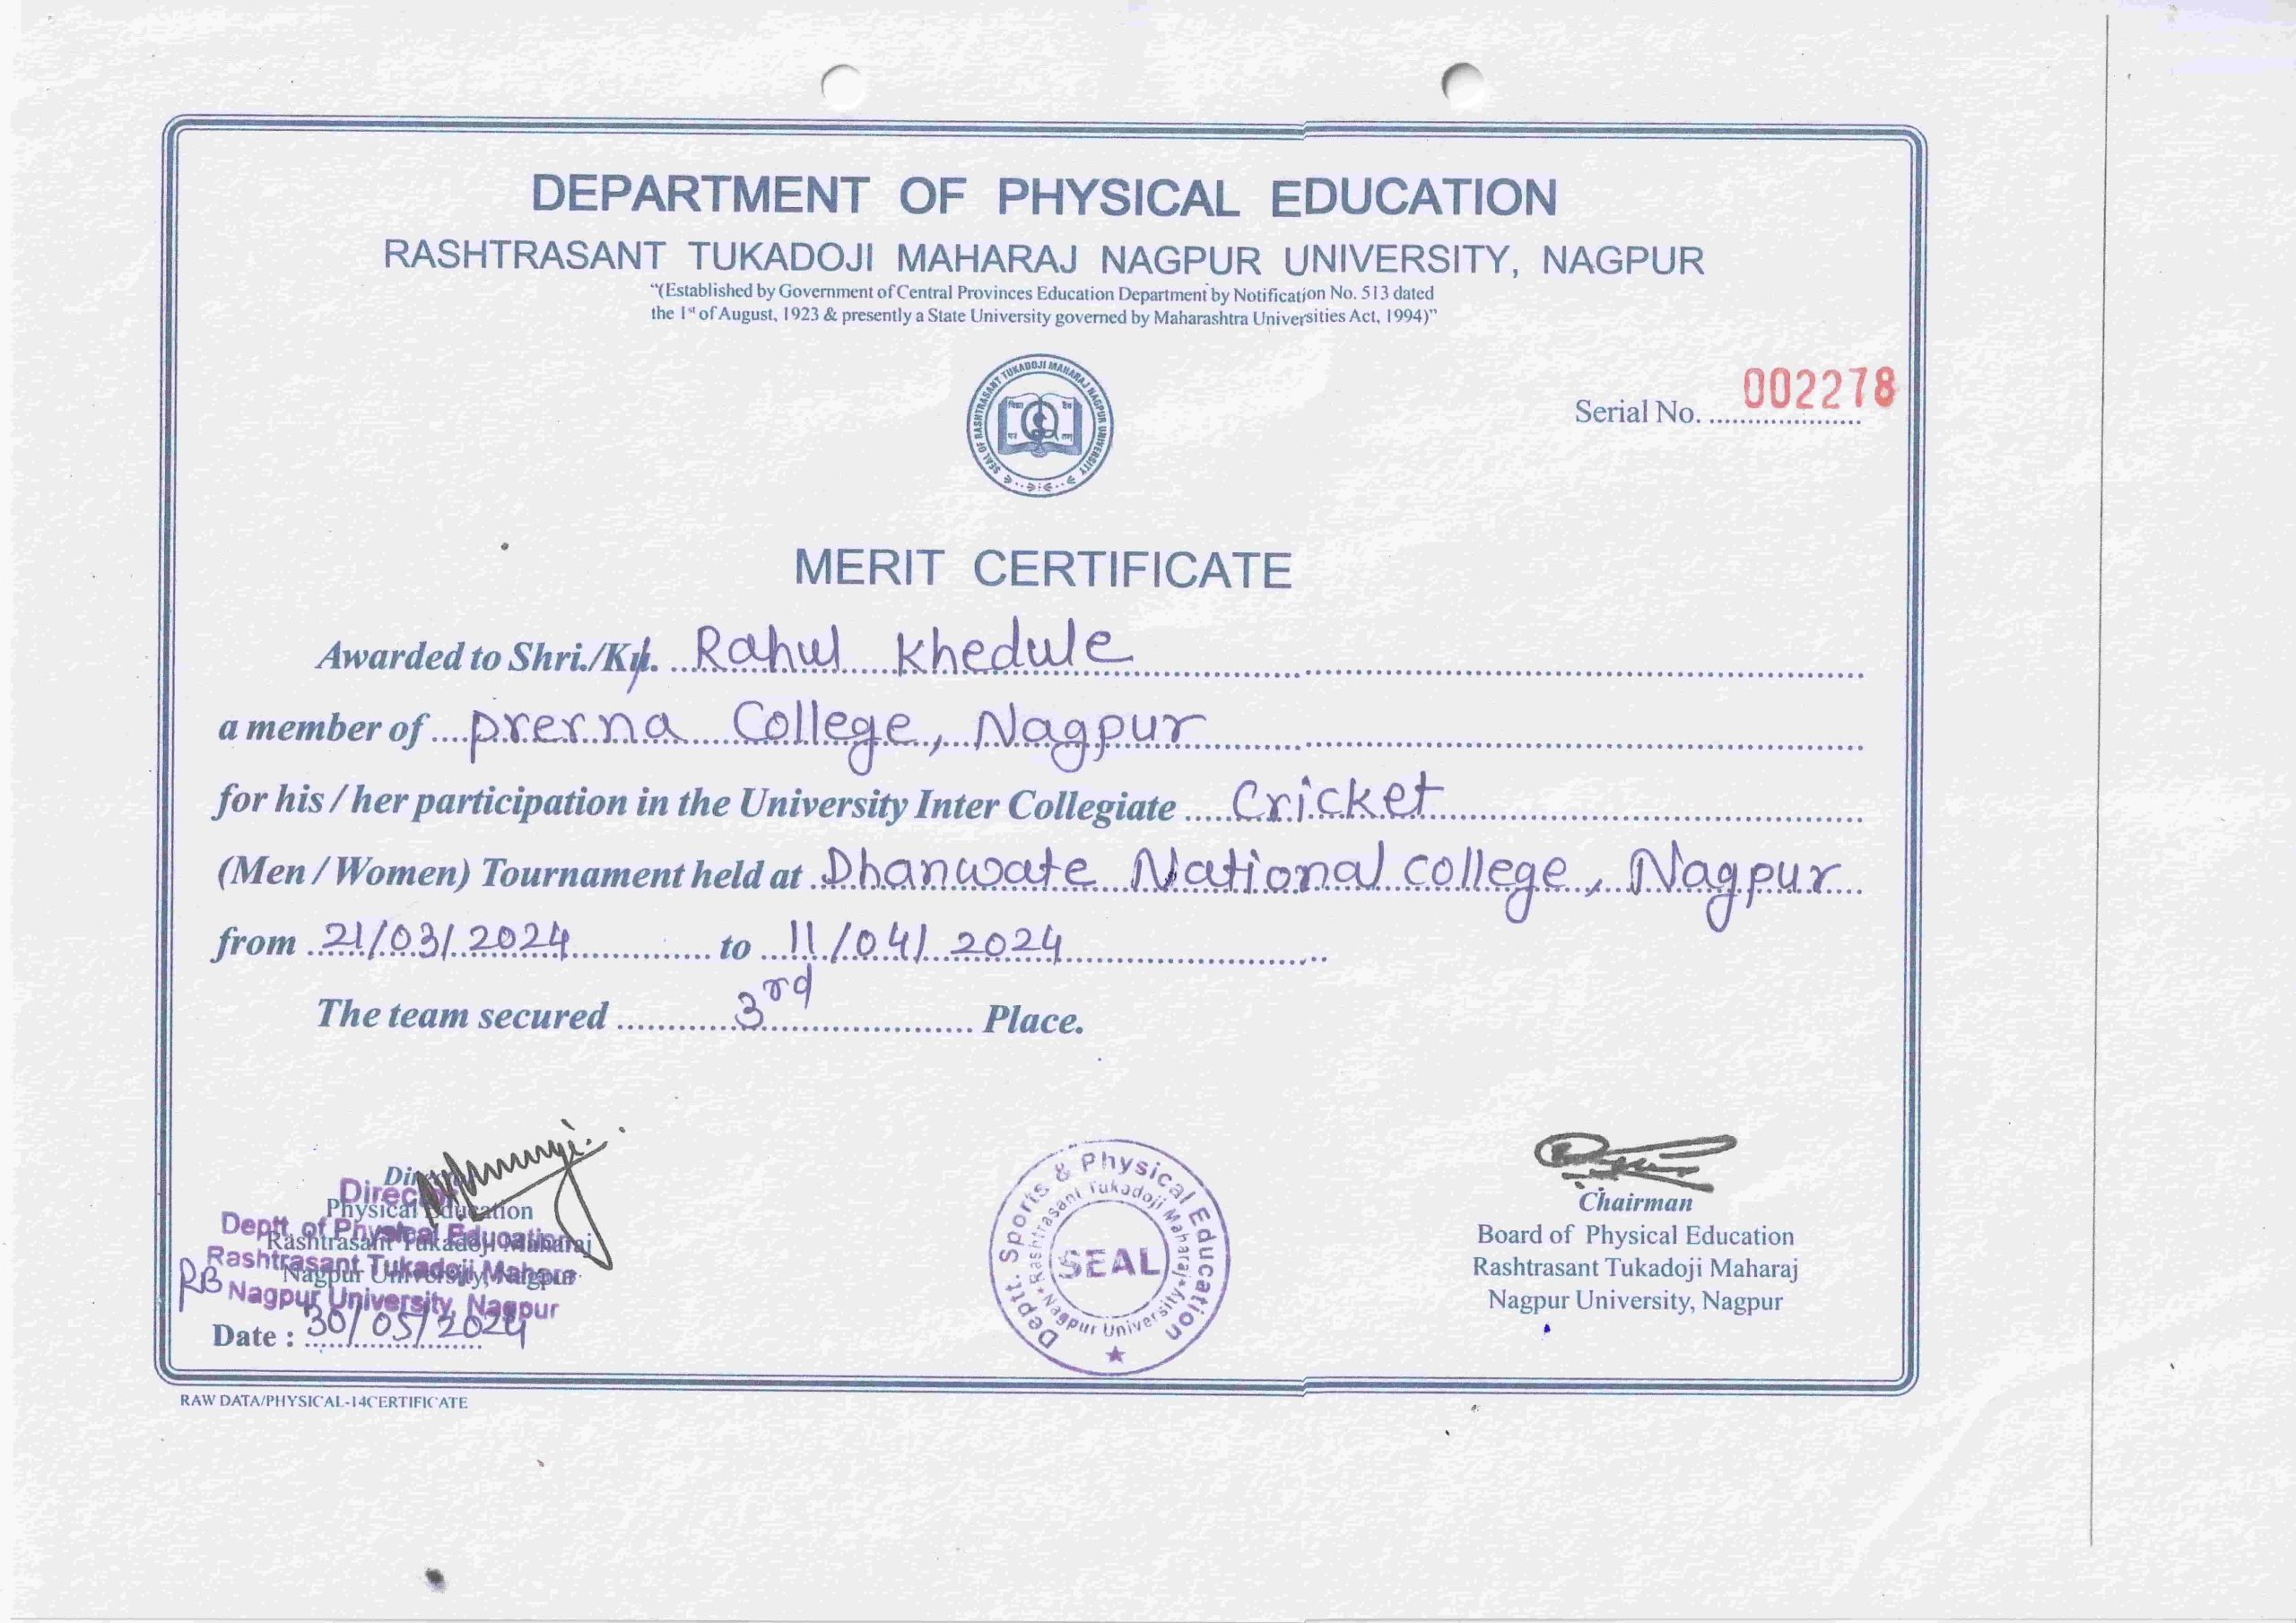 DEPARTMENT OF PHYSICAL EDUCATION
RASHTRASANT TUKADOJI MAHARAJ NAGPUR UNIVERSITY, NAGPUR
"(Established by Government of Central Provinces Education Department by Notification No. 513 dated
the 1st of August, 1923 & presently a State University governed by Maharashtra Universities Act, 1994)"
SEAL OF RASHTRASANT TUKADOJI MAHARAJ NAGPUR UNIVERSITY
Serial No. 002278
MERIT CERTIFICATE
Awarded to Shri./Ku. Rahul khedule
a member of prerna College, Nagpur
for his / her participation in the University Inter Collegiate Cricket
(Men / Women) Tournament held at Dhanwate National college, Nagpur
from 21/03/2024 to 11/04/2024
The team secured 3rd Place.
Director
Physical Education
Rashtrasant Tukadoji Maharaj
Nagpur University, Nagpur
Director
Deptt. of Physical Education
Rashtrasant Tukadoji Mahara
Nagpur University, Nagpur
RB
Date : 30/05/2024
Deptt. Sports & Physical Education
Rashtrasant Tukadoji Maharaj
Nagpur University
SEAL
Chairman
Board of Physical Education
Rashtrasant Tukadoji Maharaj
Nagpur University, Nagpur
RAW DATA/PHYSICAL-14CERTIFICATE